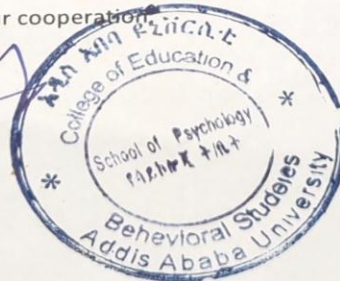 ur cooperation.
አዲስ አበባ ዩኒቨርሲቲ
College of Education &
School of Psychology
Behevioral Studeies
Addis Ababa University